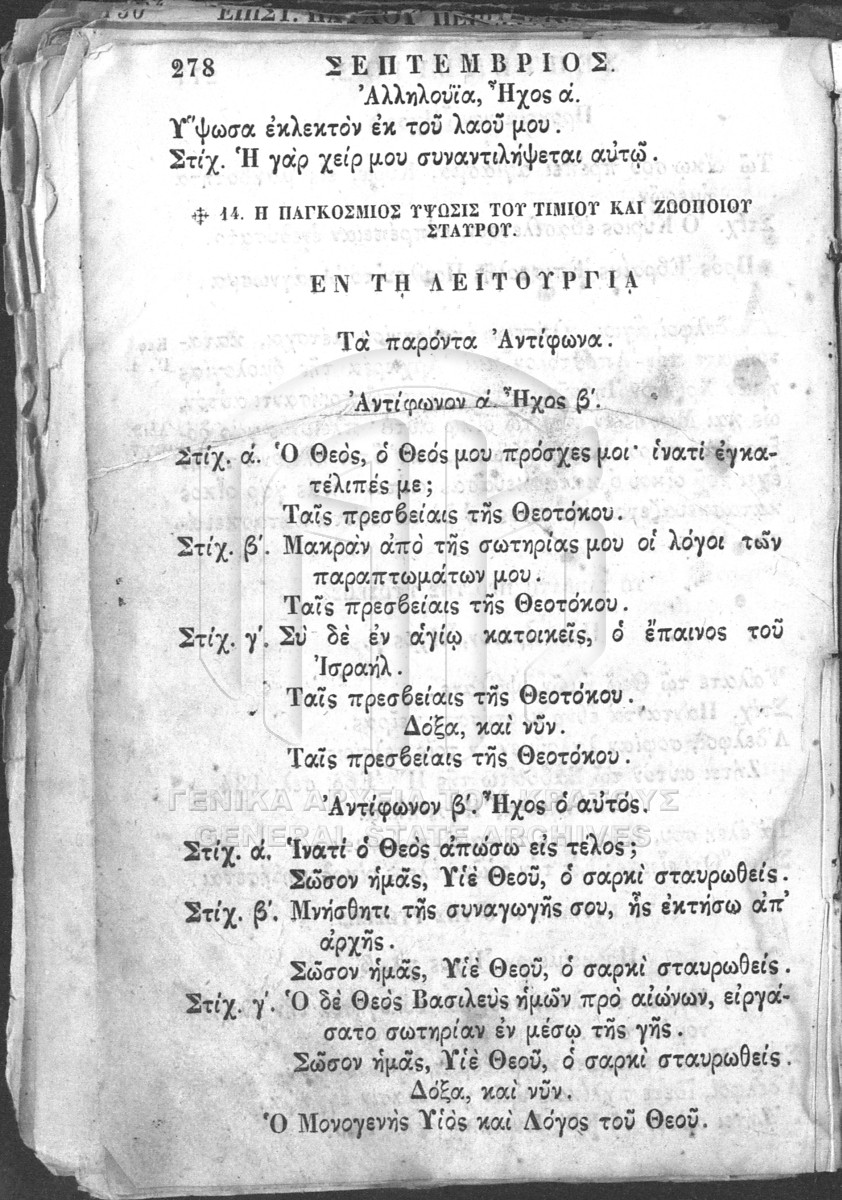 278 ΣΕΠΤΕΜΒΡΙΟΣ.
Ἀλληλούϊα, Ἦχος ά.
Ὕψωσα ἐκλεκτὸν ἐκ τοῦ λαοῦ μου.
Στίχ. Ἡ γὰρ χείρ μου συναντιλήψεται αὐτῷ.
14. Η ΠΑΓΚΟΣΜΙΟΣ ΥΨΩΣΙΣ ΤΟΥ ΤΙΜΙΟΥ ΚΑΙ ΖΩΟΠΟΙΟΥ
ΣΤΑΥΡΟΥ.
ΕΝ ΤΗ ΛΕΙΤΟΥΡΓΙΑ
Τὰ παρόντα Ἀντίφωνα.
Ἀντίφωνον ά. Ἦχος β΄.
Στίχ. ά. Ὁ Θεὸς, ὁ Θεός μου πρόσχες μοι· ἱνατί ἐγκα-
τέλιπές με;
Ταῖς πρεσβείαις τῆς Θεοτόκου.
Στίχ. β΄. Μακρὰν ἀπὸ τῆς σωτηρίας μου οἱ λόγοι τῶν
παραπτωμάτων μου.
Ταῖς πρεσβείαις τῆς Θεοτόκου.
Στίχ. γ΄. Σὺ δὲ ἐν ἁγίῳ κατοικεῖς, ὁ ἔπαινος τοῦ
Ἰσραήλ.
Ταῖς πρεσβείαις τῆς Θεοτόκου.
Δόξα, καὶ νῦν.
Ταῖς πρεσβείαις τῆς Θεοτόκου.
ΓΕΝΙΚΑ ΑΡΧΕΙΑ ΤΟΥ ΚΡΑΤΟΥΣ
Ἀντίφωνον β΄. Ἦχος ὁ αὐτός.
GENERAL STATE ARCHIVES
Στίχ. ά. Ἱνατί ὁ Θεὸς ἀπώσω εἰς τέλος;
Σῶσον ἡμᾶς, Υἱὲ Θεοῦ, ὁ σαρκὶ σταυρωθείς.
Στίχ. β΄. Μνήσθητι τῆς συναγωγῆς σου, ἧς ἐκτήσω ἀπ'
ἀρχῆς.
Σῶσον ἡμᾶς, Υἱὲ Θεοῦ, ὁ σαρκὶ σταυρωθείς.
Στίχ. γ΄. Ὁ δὲ Θεὸς Βασιλεὺς ἡμῶν πρὸ αἰώνων, εἰργά-
σατο σωτηρίαν ἐν μέσῳ τῆς γῆς.
Σῶσον ἡμᾶς, Υἱὲ Θεοῦ, ὁ σαρκὶ σταυρωθείς.
Δόξα, καὶ νῦν.
Ὁ Μονογενὴς Υἱὸς καὶ Λόγος τοῦ Θεοῦ.